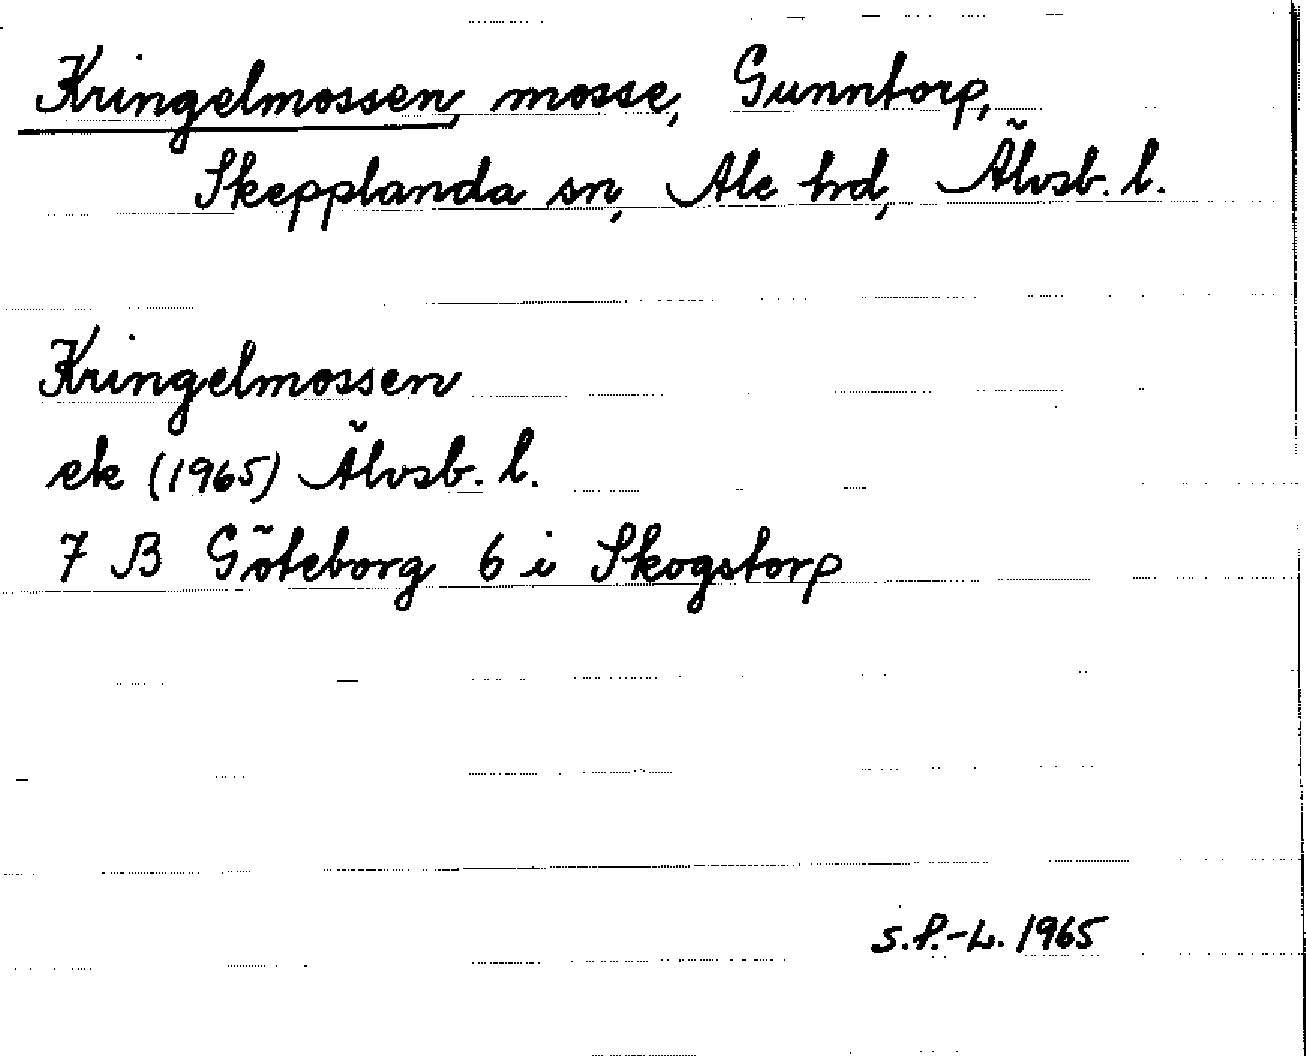 Kringelmossen, mosse, Gunntorp,
Skepplanda sn, Ale hd, Älvsb. l.
Kringelmossen
ek (1965) Älvsb. l.
7 B Göteborg 6 i Skogstorp
S.P.-L. 1965